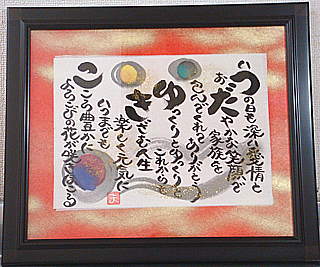 いつの日も深い愛情と
おだやかな笑顔で
家族を
つつんでくれてありがとう
ゆっくりとゆっくりと
これから
きざむ人生
楽しく元気に
いつまでも
こころ豊かに
よろこびの花が咲きほこる